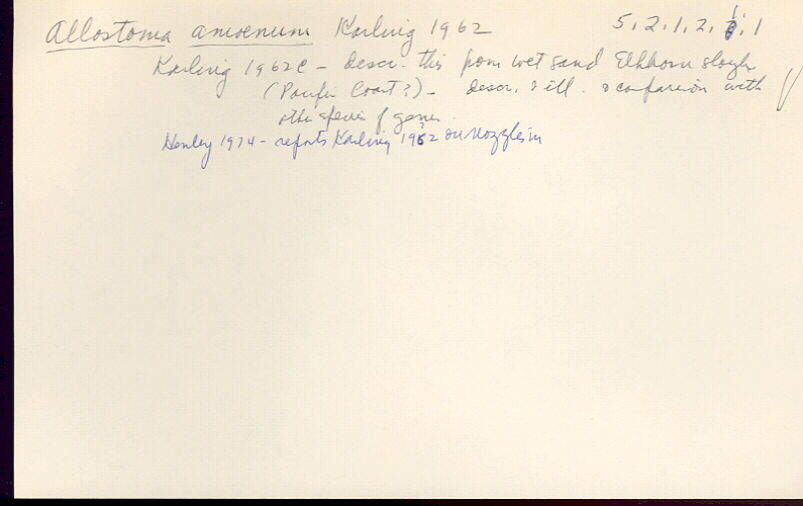 Allostoma amoenum Karling 1962 5, 2, 1, 2, 1, 1
Karling 1962c - descr. this from wet sand Elkhorn slough
(Pacific Coast?) - descr. & ill. & comparison with
other species of genus.
Henley 1974 - reports Karling 1962 on nozzle in